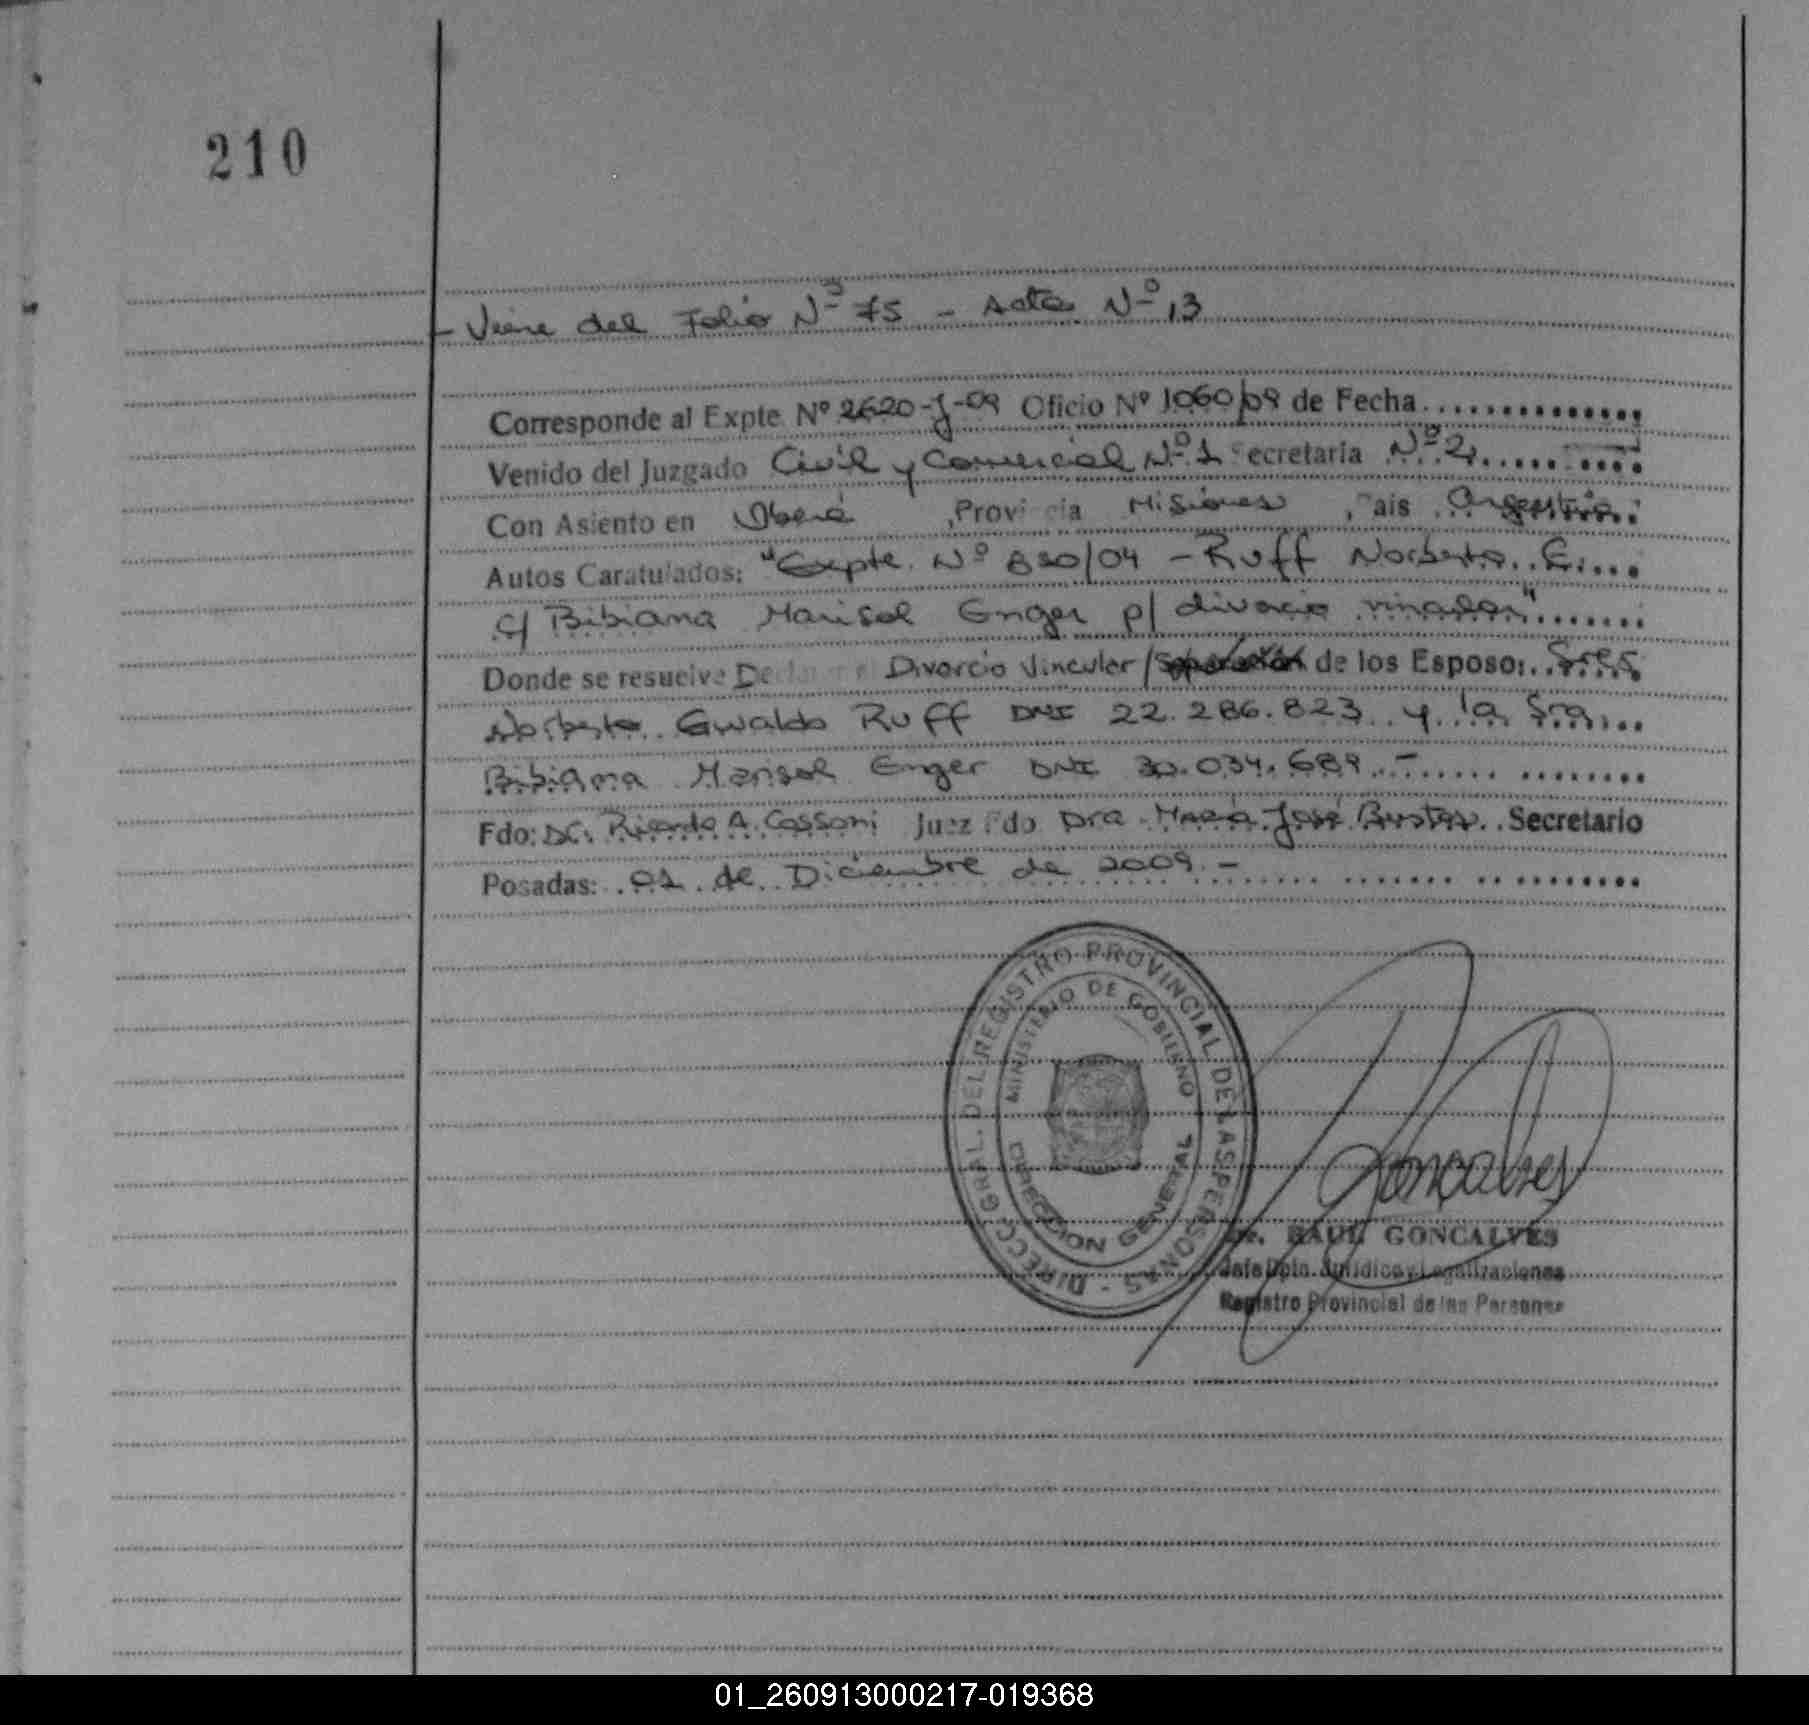 210
- Viene del Folio Nº 75 - Acta Nº 13
Corresponde al Expte. Nº 2620-J-09 Oficio Nº 1060/09 de Fecha..............
Venido del Juzgado Civil y Comercial Nº 1 Secretaria Nº 2..........
Con Asiento en Oberá, Provincia Misiones, Pais Argentina.
Autos Caratulados: "Expte. Nº 880/04 - Ruff Norberto E....
c/ Bibiana Marisol Enger p/ divorcio vincular".......
Donde se resuelve Declarar el Divorcio Vincular / Separación de los Esposo: Sres
Norberto Ewaldo Ruff DNI 22.286.823 y la Sra...
Bibiana Marisol Enger DNI 30.034.689.-..............
Fdo: Dr. Ricardo A. Cassoni Juez Fdo Dra María José Bustos Secretario
Posadas: 01 de Diciembre de 2009.-..............
DIRECC. GRAL. DEL REGISTRO PROVINCIAL DE LAS PERSONAS
MINISTERIO DE GOBIERNO
DIRECCION GENERAL
Goncalves
Dr. RAUL GONCALVES
Jefe Dpto. Jurídico y Legalizaciones
Registro Provincial de las Personas
01_260913000217-019368